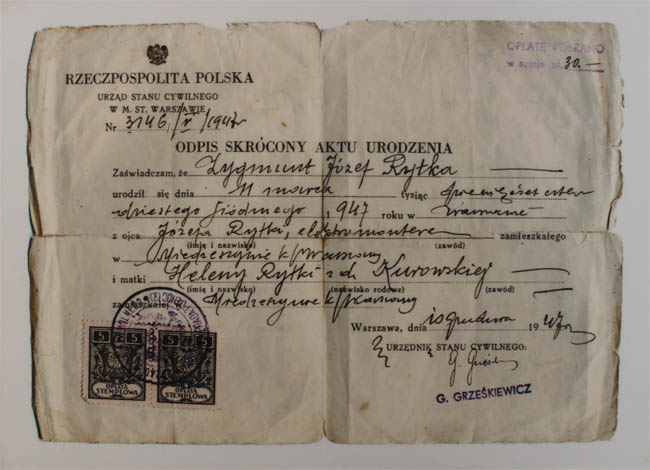 OPŁATĘ POBRANO
w sumie zł. 30.—
RZECZPOSPOLITA POLSKA
URZĄD STANU CYWILNEGO
W M. ST. WARSZAWIE
Nr 3146/V/1947
ODPIS SKRÓCONY AKTU URODZENIA
Zaświadczam, że Zygmunt Józef Rytka
urodził się dnia 11 marca tysiąc dziewięćset czter
dziestego siódmego, 1947 roku w Warszawie
z ojca Józefa Rytki, elektromontera zamieszkałego
(imię i nazwisko) (zawód)
w Międzeszynie k/Warszawy
i matki Heleny Rytki z d. Kurowskiej
(imię i nazwisko) (nazwisko rodowe) (zawód)
zamieszkałej Międzeszynie k/Warszawy
Warszawa, dnia 10 grudnia 1947
URZĘDNIK STANU CYWILNEGO:
G. GRZEŚKIEWICZ
5 ZŁ 5 5 ZŁ 5
OPŁATA STEMPLOWA OPŁATA STEMPLOWA